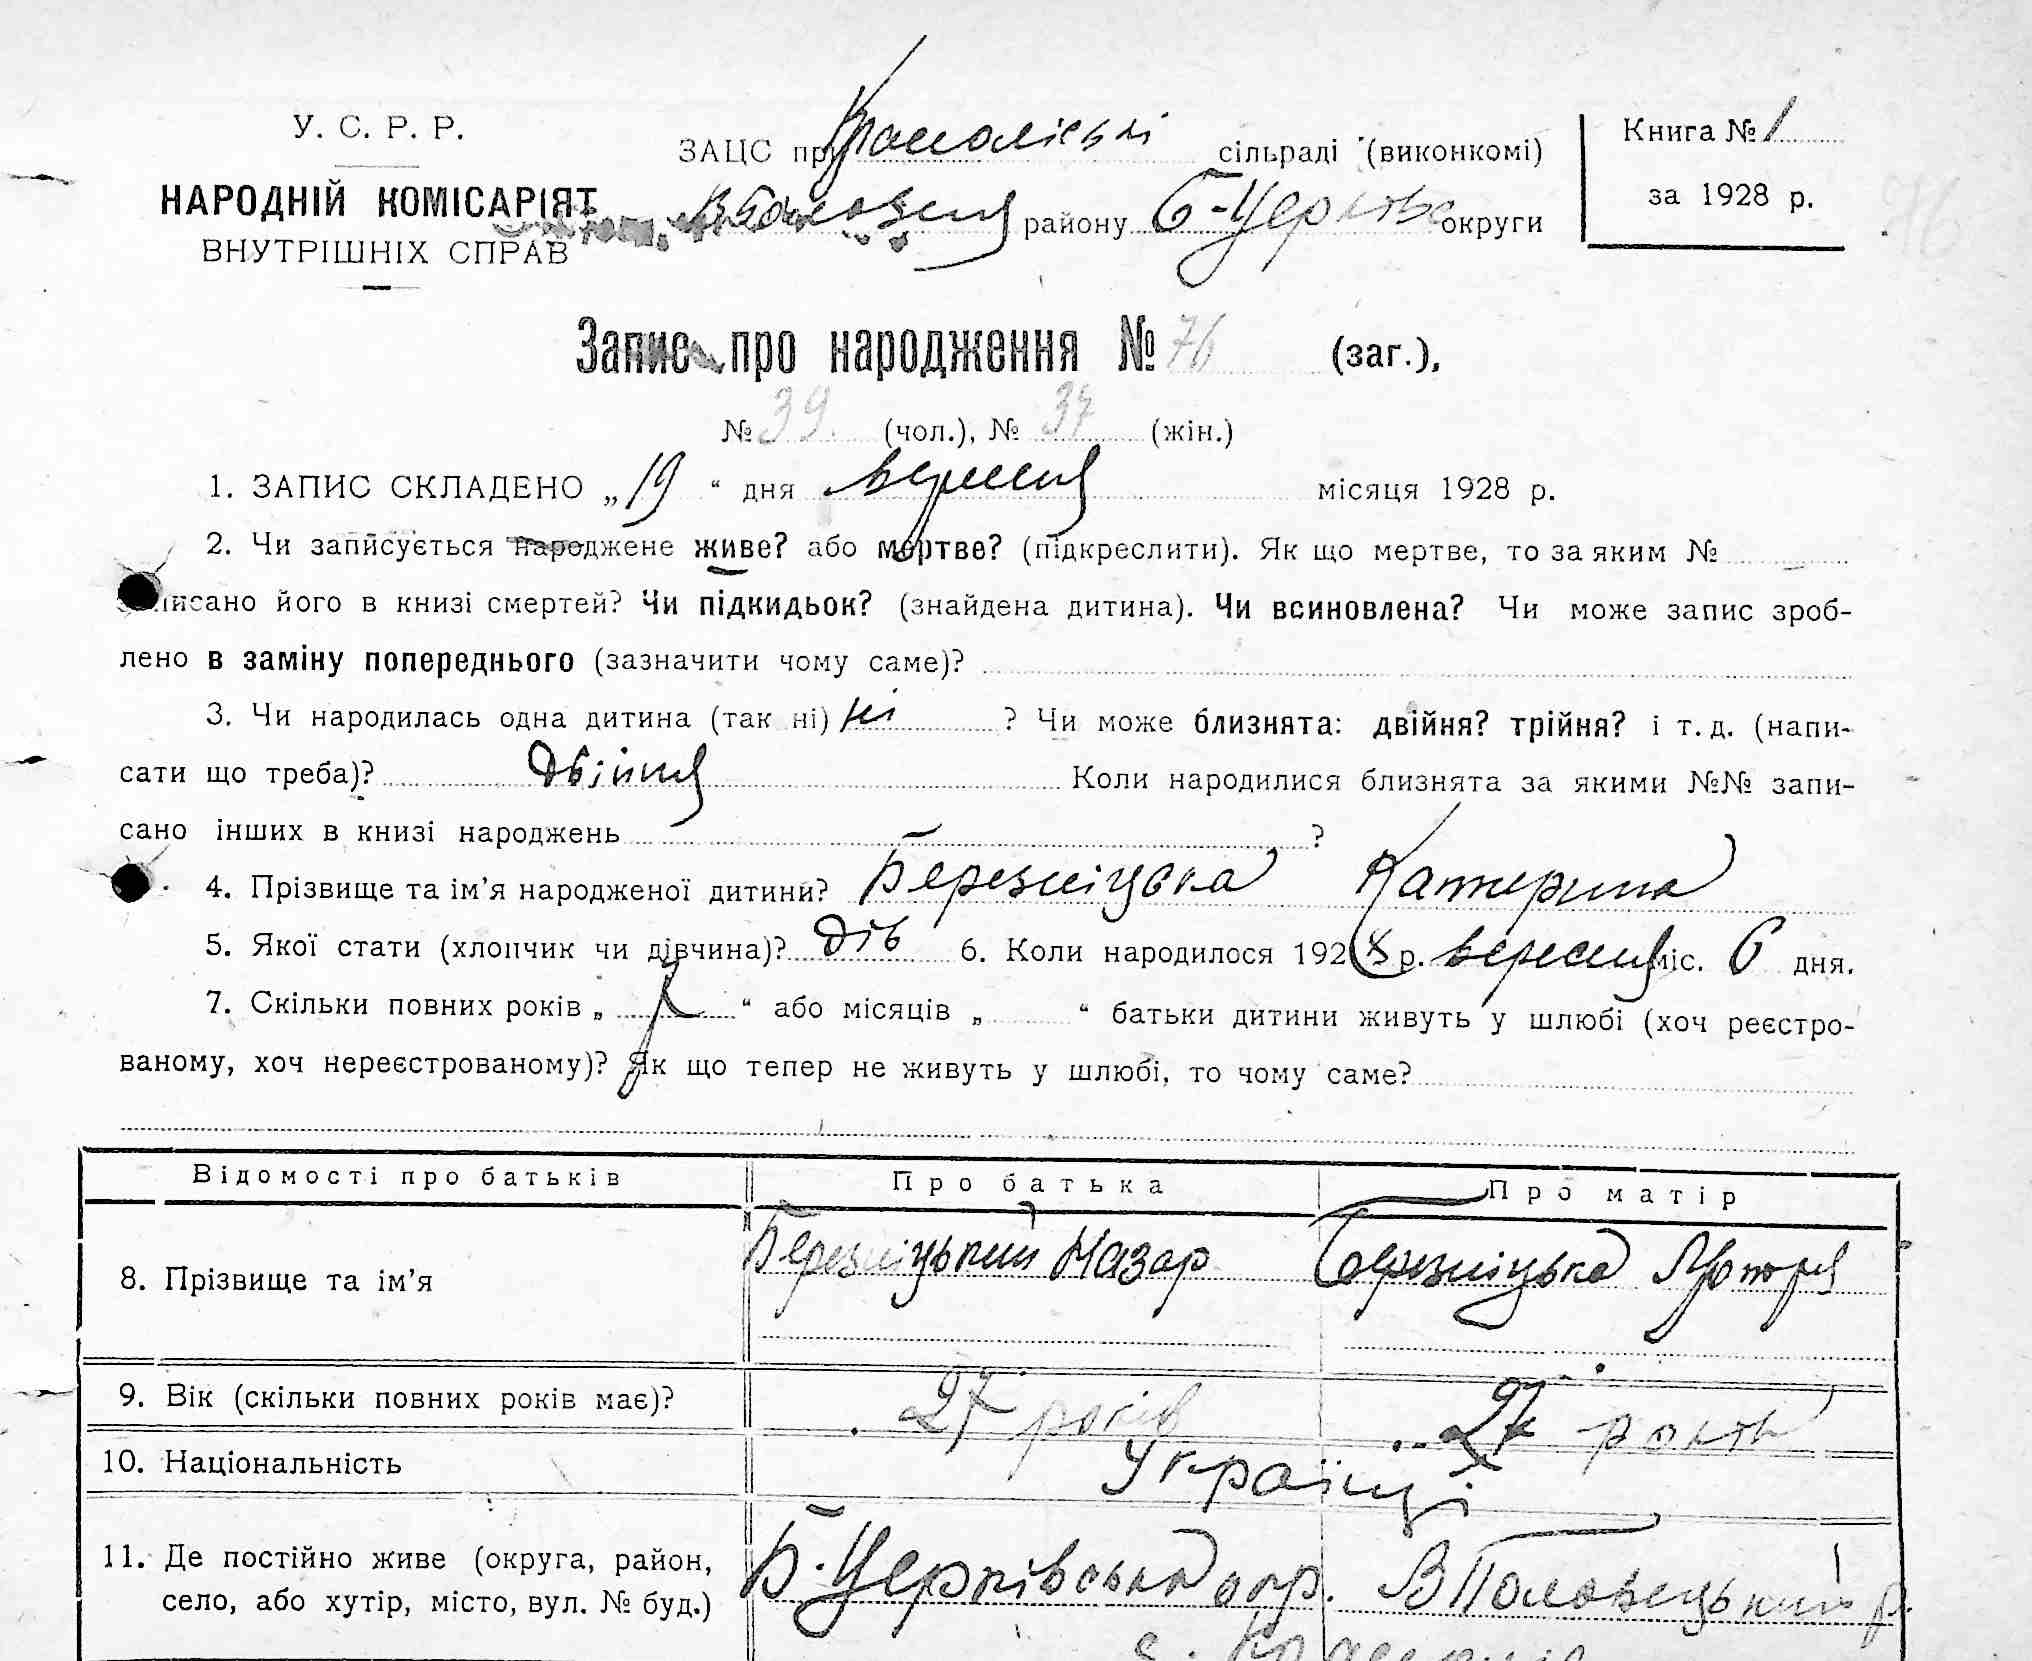 У. С. Р. Р.
НАРОДНІЙ КОМІСАРІЯТ
ВНУТРІШНІХ СПРАВ
ЗАЦС при Красноліські сільраді (виконкомі)
району Б-Церківс округи
Книга № 1
за 1928 р.
76
Запис про народження № 76 (заг.),
№ 39 (чол.), № 37 (жін.)
1. ЗАПИС СКЛАДЕНО „19“ дня вересня місяця 1928 р.
2. Чи записується народжене живе? або мертве? (підкреслити). Як що мертве, то за яким №
записано його в книзі смертей? Чи підкидьок? (знайдена дитина). Чи всиновлена? Чи може запис зроб-
лено в заміну попереднього (зазначити чому саме)?
3. Чи народилась одна дитина (так ні) ні ? Чи може близнята: двійня? трійня? і т. д. (напи-
сати що треба)? двійня Коли народилися близнята за якими №№ запи-
сано інших в книзі народжень ?
4. Прізвище та ім’я народженої дитини? Березніцька Катерина
5. Якої стати (хлопчик чи дівчина)? дів 6. Коли народилося 1928 р. вересня міс. 6 дня.
7. Скільки повних років „ “ або місяців „ “ батьки дитини живуть у шлюбі (хоч реєстро-
ваному, хоч нереєстрованому)? Як що тепер не живуть у шлюбі, то чому саме?
Відомості про батьків Про батька Про матір
8. Прізвище та ім’я Березніцький Назар Березніцька
9. Вік (скільки повних років має)? 27 років 27 років
10. Національність Українці
11. Де постійно живе (округа, район, Б. Церківська окр. В Половецький р.
село, або хутір, місто, вул. № буд.)